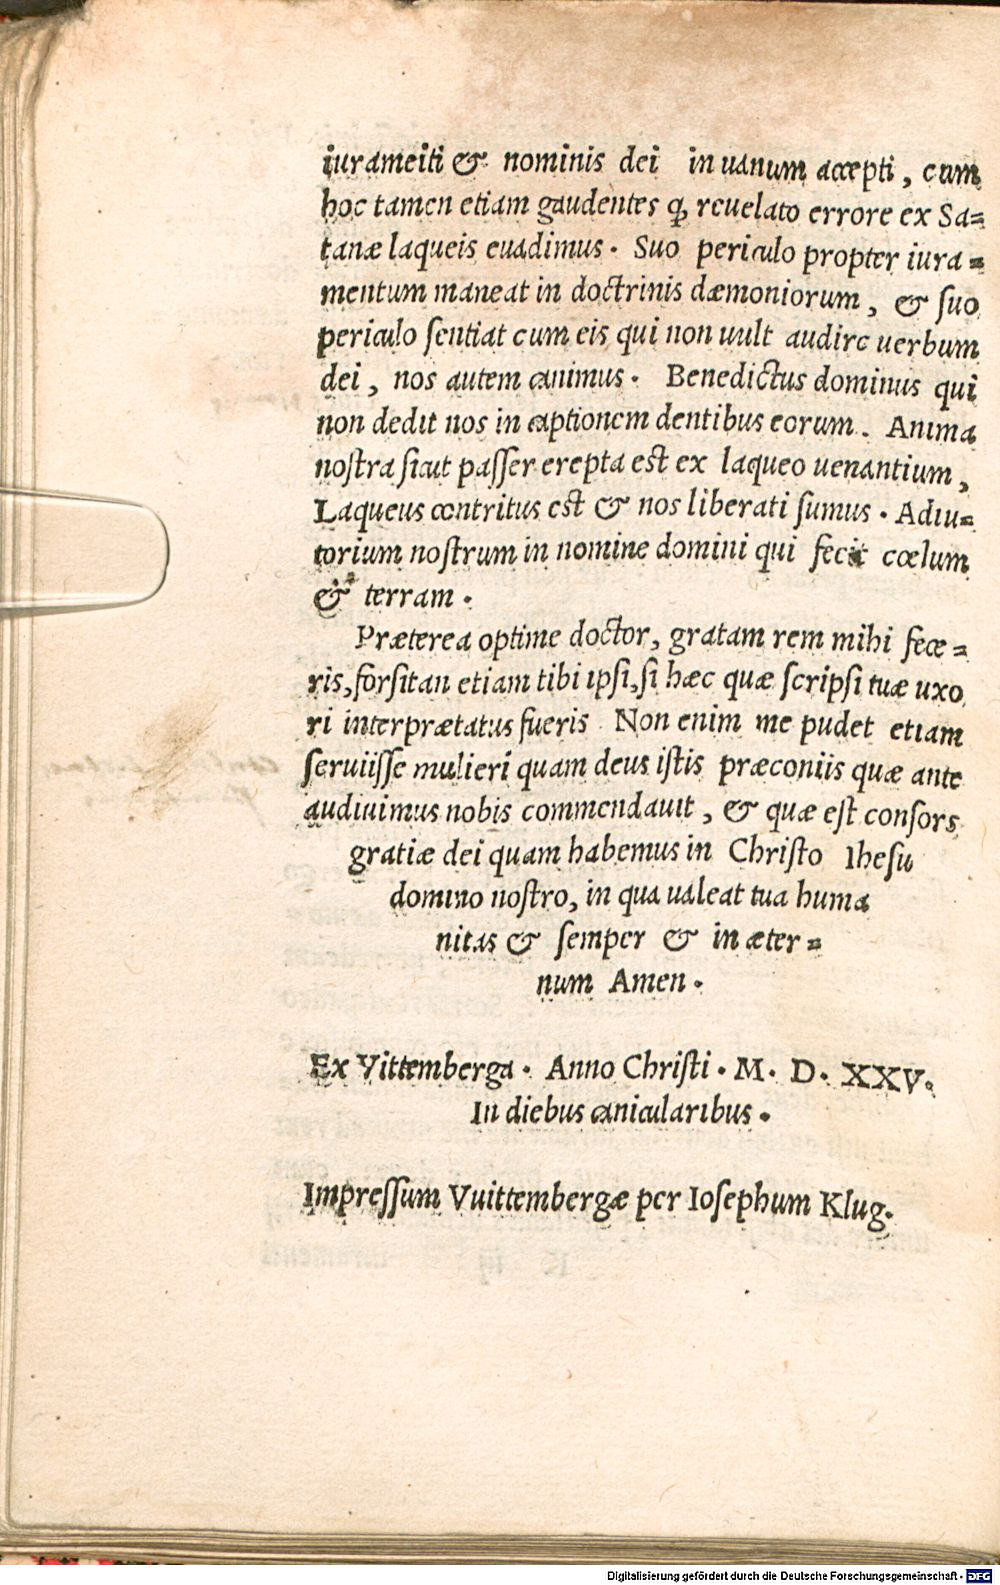 iurameiti & nominis dei in uanum accepti, cum
hoc tamen etiam gaudentes ꝙ reuelato errore ex Sa=
tanæ laqueis euadimus. Suo periculo propter iura=
mentum maneat in doctrinis dæmoniorum, & suo
periculo sentiat cum eis qui non uult audire uerbum
dei, nos autem canimus. Benedictus dominus qui
non dedit nos in captionem dentibus eorum. Anima
nostra sicut passer erepta est ex laqueo uenantium,
Laqueus contritus est & nos liberati sumus. Adiu=
torium nostrum in nomine domini qui fecit cœlum
& terram.
Præterea optime doctor, gratam rem mihi fece=
ris, forsitan etiam tibi ipsi, si hæc quæ scripsi tuæ uxo
ri interprætatus fueris Non enim me pudet etiam
seruiisse mulieri quam deus istis præconiis quæ ante
audiuimus nobis commendauit, & quæ est consors
gratiæ dei quam habemus in Christo Ihesu
domino nostro, in qua ualeat tua huma
nitas & semper & in æter=
num Amen.
Ex Vittemberga. Anno Christi. M. D. XXV.
In diebus canicularibus.
Impressum Vuittembergæ per Iosephum Klug.
Digitalisierung gefördert durch die Deutsche Forschungsgemeinschaft - DFG